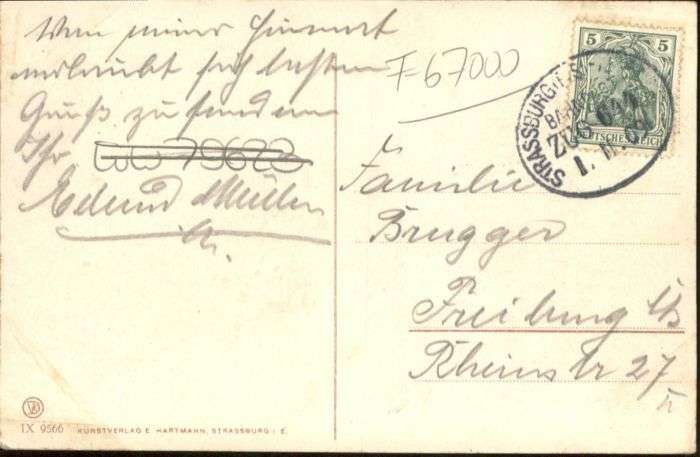 Von meiner Heimat
erlaubt sich besten
Gruß zu senden
Ihr
Edmund Müller
F=67000
5 5
STRASSBURG
ZUG
1. 11. 07
DEUTSCHES REICH
Familie
Brugger
Freiburg i/B
Rheinstr 27
IX 9566 KUNSTVERLAG E. HARTMANN, STRASSBURG I. E.